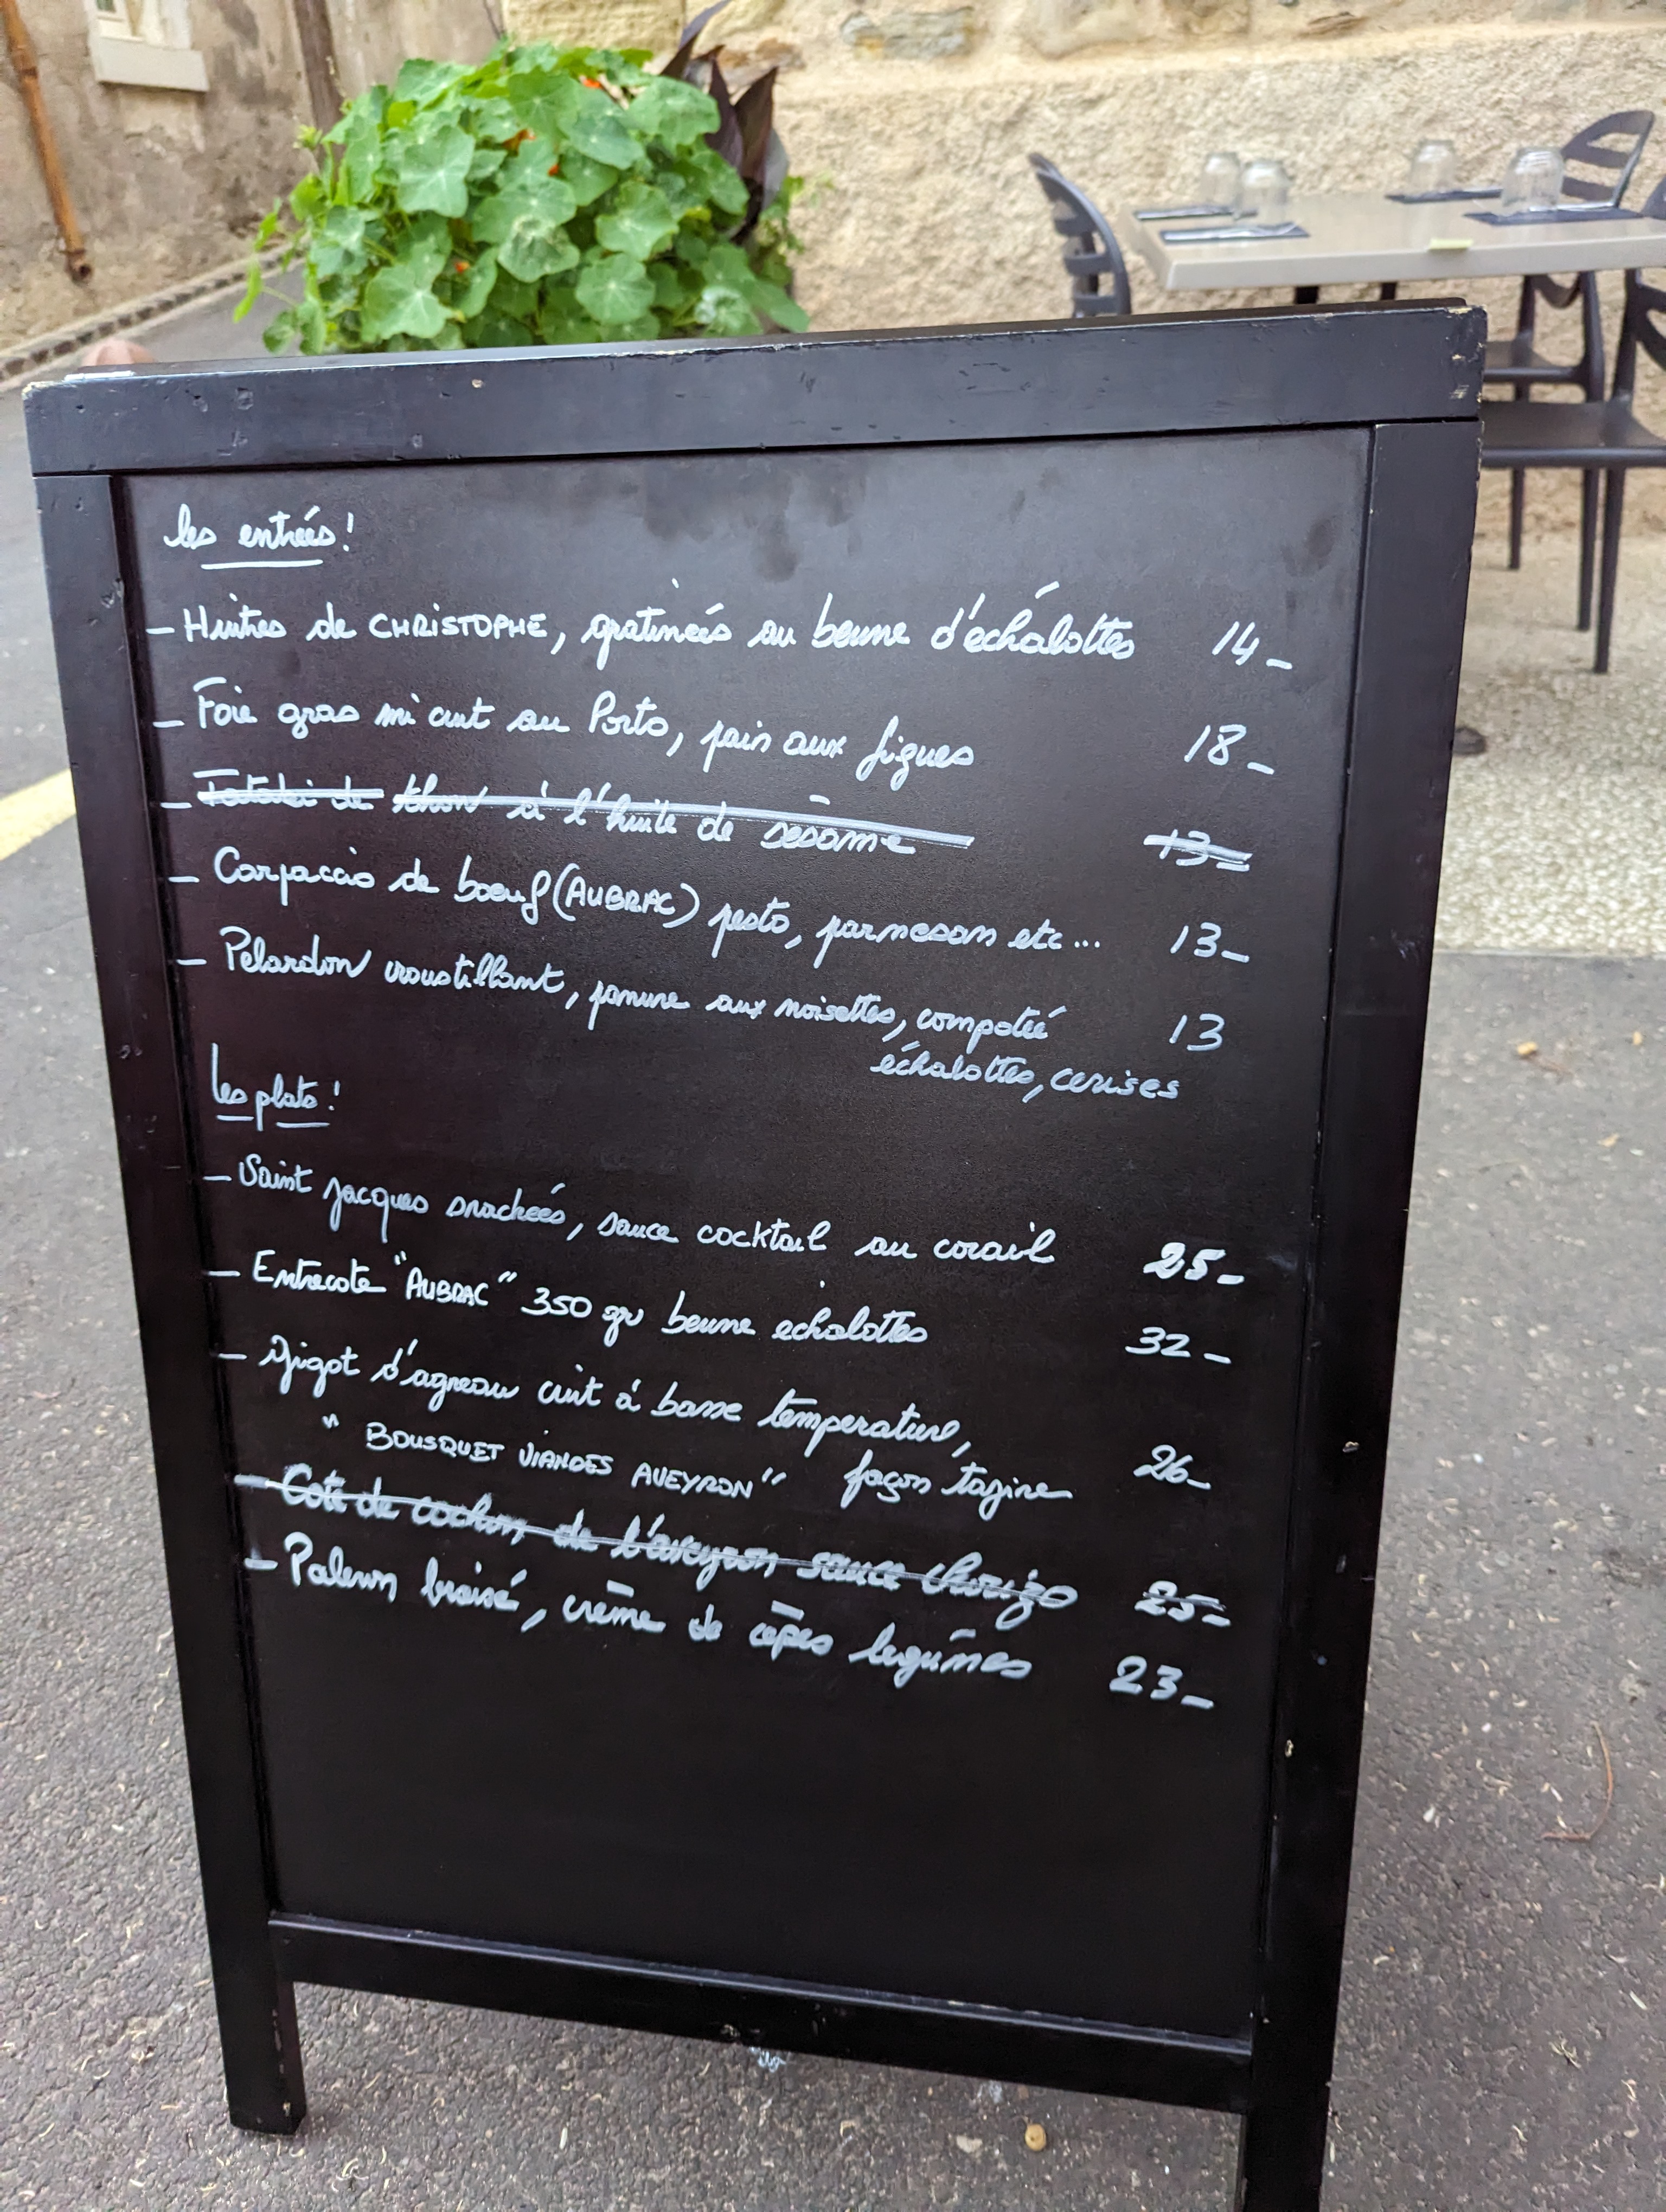 les entrées!
– Huitres de CHRISTOPHE, gratinées au beurre d'échalottes 14–
– Foie gras mi cuit au Porto, pain aux figues 18–
– Tataki de thon à l'huile de sésame 13–
– Carpaccio de boeuf (AUBRAC) pesto, parmesan etc... 13–
– Pelardon croustillant, panure aux noisettes, compotée 13
échalottes, cerises
Les plats!
– Saint Jacques snackées, sauce cocktail au corail 25–
– Entrecote "AUBRAC" 350 gr beurre echalottes 32–
– Gigot d'agneau cuit à basse temperature,
" BOUSQUET VIANDES AVEYRON" façon tagine 26–
– Cote de cochon, de l'aveyron sauce chorizo 25–
– Paleron braisé, crème de cèpes legumes 23–